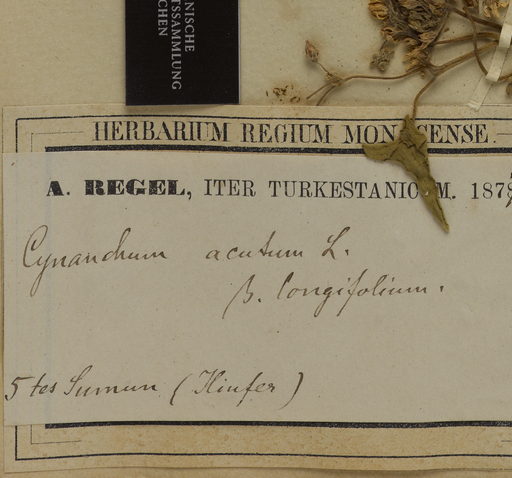 NISCHE
TSSAMMLUNG
CHEN
HERBARIUM REGIUM MONACENSE.
A. REGEL, ITER TURKESTANICUM. 187
Cynanchum acutum L.
β. longifolium.
5tes Sumun (Iliufer)